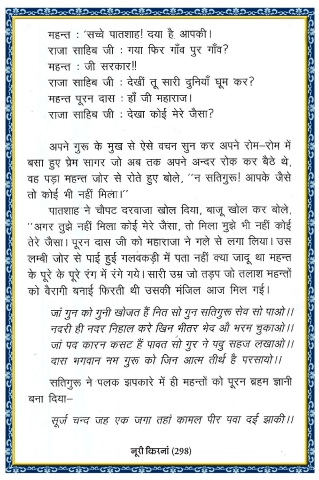 महन्त : 'सच्चे पातशाह! दया है आपकी।
राजा साहिब जी : गया फिर गाँव पुर गाँव?
महन्त : जी सरकार!!
राजा साहिब जी : देखीं तू सारी दुनियाँ घूम कर?
महन्त पूरन दास : हाँ जी महाराज।
राजा साहिब जी : देखा कोई मेरे जैसा?
अपने गुरू के मुख से ऐसे वचन सुन कर अपने रोम–रोम में
बसा हुए प्रेम सागर जो अब तक अपने अन्दर रोक कर बैठे थे,
वह पड़ा महन्त जोर से रोते हुए बोले, ''न सतिगुरू! आपके जैसे
तो कोई भी नहीं मिला।''
पातशाह ने चौपट दरवाजा खोल दिया, बाजू खोल कर बोले,
''अगर तुझे नहीं मिला कोई मेरे जैसा, तो मिला मुझे भी नहीं कोई
तेरे जैसा। पूरन दास जी को महाराजा ने गले से लगा लिया। उस
लम्बी जोर से पाई हुई गलवकड़ी में पता नहीं क्या जादू था महन्त
के पूरे के पूरे रंग में रंगे गये। सारी उम्र जो तड़प जो तलाश महन्तों
को वैरागी बनाई फिरती थी उसकी मंजिल आज मिल गई।
जां गुन को गुनी खोजत हैं नित सो गुन सतिगुरू सेव सो पाओ।।
नदरी ही नदर निहाल करे खिन भीतर भेद औ भरम चुकाओ।।
जां पद कारन कसट हैं पावत सो गुर ने पदु सहज लखाओ।।
दास भगवान नम गुरू को जिन आत्म तीर्थ है परसायो।।
सतिगुरू ने पलक झपकारे में ही महन्तों को पूरन ब्रहम ज्ञानी
बना दिया–
सूर्ज चन्द जह एक जगा तहां कामल पीर पवा दई झाकी।।
नूरी किरनां (298)